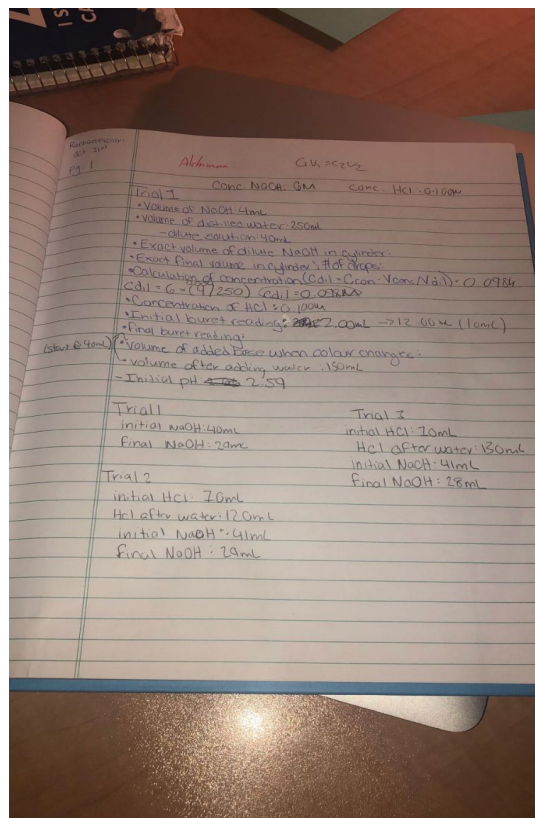 Oct 31st
Pg. 1
C₁V₁=C₂V₂
Conc NaOH: 6M conc. HCl: 0.100M
Trial 1
• Volume of NaOH: 4mL
• Volume of distilled water: 250mL
- dilute solution: 40mL
• Exact volume of dilute NaOH in cylinder:
• Exact final volume in cylinder: # of drops:
• Calculation of concentration (Cdil = Ccon · Vconc/Vdil) = 0.098M
Cdil = 6 - (4/250) Cdil = 0.098M
• Concentration of HCl: 0.100M
• Initial buret reading: 2.00mL → 12.00 (10mL)
• final buret reading:
(start @ 40mL) • Volume of added base when colour changes:
- volume after adding water: 150mL
- Initial pH 2.59
Trial 1
initial NaOH: 40mL
Final NaOH: 29mL
Trial 2
initial HCl: 70mL
HCl after water: 120mL
initial NaOH: 41mL
final NaOH: 29mL
Trial 3
initial HCl: 70mL
HCl after water: 130mL
initial NaOH: 41mL
Final NaOH: 28mL